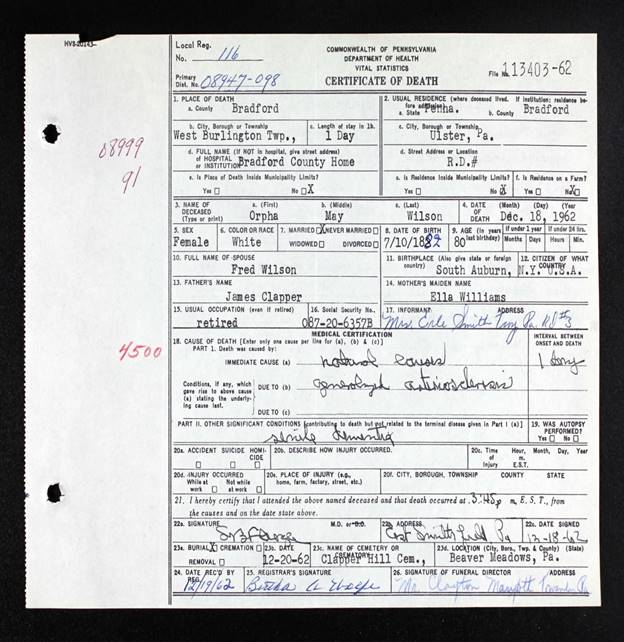 HVS-20143
Local Reg. No. 116
COMMONWEALTH OF PENNSYLVANIA
DEPARTMENT OF HEALTH
VITAL STATISTICS
CERTIFICATE OF DEATH
File No. 113403-62
Primary Dist. No. 08947-098
08999
91
4500
1. PLACE OF DEATH
a. County Bradford
2. USUAL RESIDENCE (where deceased lived. If institution: residence before admission)
a. State Penna. b. County Bradford
b. City, Borough or Township
West Burlington Twp.,
c. Length of stay in 1b
1 Day
c. City, Borough or Township
Ulster, Pa.
d. FULL NAME (If NOT in hospital, give street address) OF HOSPITAL OR INSTITUTION
Bradford County Home
d. Street Address or Location
R.D.#
e. Is Place of Death Inside Municipality Limits?
Yes No X
e. Is Residence Inside Municipality Limits?
Yes No X
f. Is Residence on a Farm?
Yes No X
3. NAME OF DECEASED (Type or print)
a. (First) Orpha
b. (Middle) May
c. (Last) Wilson
4. DATE OF DEATH (Month) (Day) (Year)
Dec. 18, 1962
5. SEX
Female
6. COLOR OR RACE
White
7. MARRIED X NEVER MARRIED
WIDOWED DIVORCED
8. DATE OF BIRTH
7/10/1882
9. AGE (In years last birthday)
80
If under 1 year Months Days
If under 24 hrs. Hours Min.
10. FULL NAME OF SPOUSE
Fred Wilson
11. BIRTHPLACE (Also give state or foreign country)
South Auburn, N.Y.
12. CITIZEN OF WHAT COUNTRY
U.S.A.
13. FATHER'S NAME
James Clapper
14. MOTHER'S MAIDEN NAME
Ella Williams
15. USUAL OCCUPATION (even if retired)
retired
16. Social Security No.
087-20-6357B
17. INFORMANT ADDRESS
Mrs. Smith Troy Pa. RD #3
MEDICAL CERTIFICATION
18. CAUSE OF DEATH [Enter only one cause per line for (a), (b) & (c)]
PART I. Death was caused by:
INTERVAL BETWEEN ONSET AND DEATH
IMMEDIATE CAUSE (a) natural causes 1 day
Conditions, if any, which gave rise to above cause (a) stating the underlying cause last.
DUE TO (b) generalized arteriosclerosis
DUE TO (c)
PART II. OTHER SIGNIFICANT CONDITIONS (contributing to death but not related to the terminal disease given in Part I (a)
senile dementia
19. WAS AUTOPSY PERFORMED?
YES NO
20a. ACCIDENT SUICIDE HOMICIDE
20b. DESCRIBE HOW INJURY OCCURRED.
20c. Time of Injury Hour, Month, Day, Year
m. E.S.T.
20d. INJURY OCCURRED
While at work Not while at work
20e. PLACE OF INJURY (e.g., home, farm, factory, street, etc.)
20f. CITY, BOROUGH, TOWNSHIP COUNTY STATE
21. I hereby certify that I attended the above named deceased and that death occurred at 3:45p m, E.S.T., from
the causes and on the date state above.
22a. SIGNATURE M.D. or D.O.
22b. ADDRESS
East Smithfield Pa
22c. DATE SIGNED
12-18-62
23a. BURIAL X CREMATION
REMOVAL
23b. DATE
12-20-62
23c. NAME OF CEMETERY OR CREMATORY
Clapper Hill Cem.,
23d. LOCATION (City, Boro, Twp. & County) (State)
Beaver Meadows, Pa.
24. DATE REC'D BY REG.
12/19/62
25. REGISTRAR'S SIGNATURE
Bertha A
26. SIGNATURE OF FUNERAL DIRECTOR ADDRESS
Clayton Towanda Pa